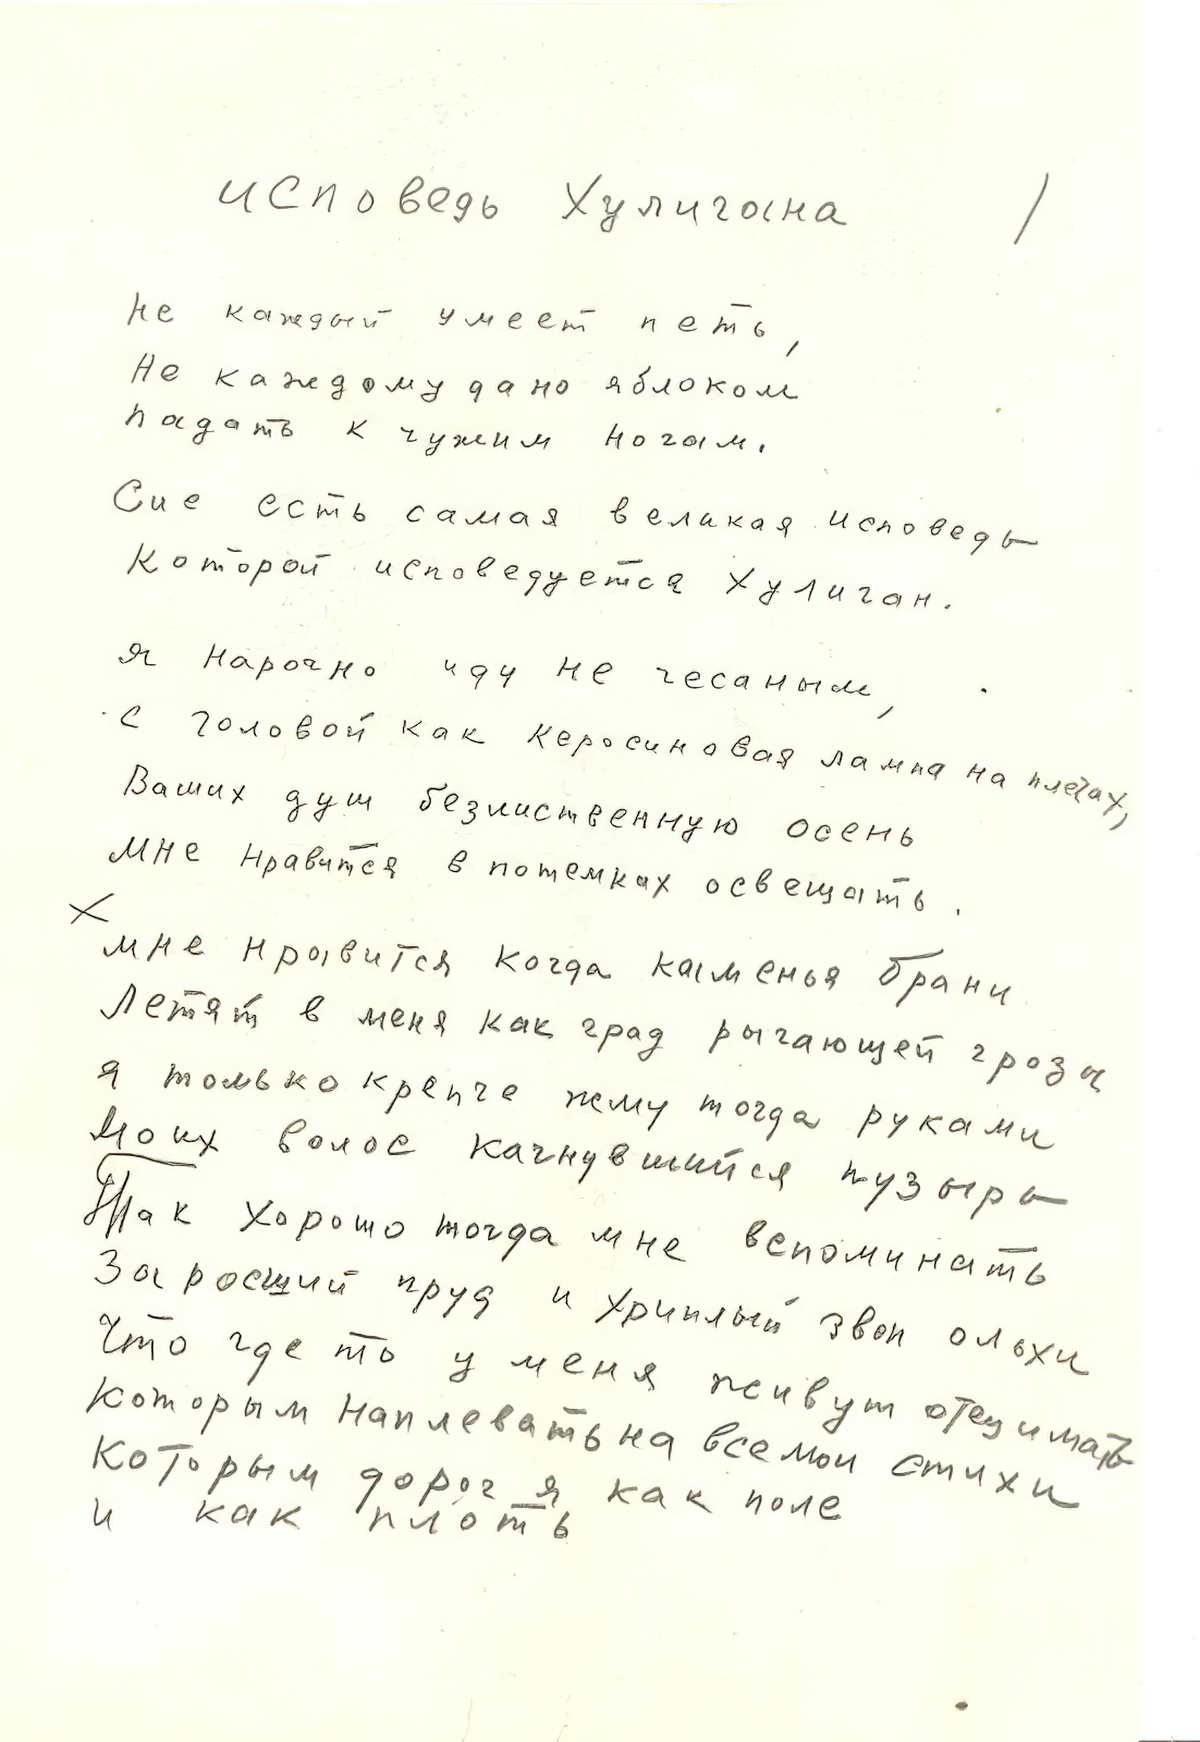 исповедь Хулигана /
Не каждый умеет петь,
Не каждому дано яблоком
падать к чужим ногам.
Сие есть самая великая исповедь
Которой исповедуется Хулиган.
я нарочно иду не чесаным,
с головой как керосиновая лампа на плечах,
Ваших душ безлиственную осень
мне нравится в потемках освещать.
х
мне нравится когда каменья брани
Летят в меня как град рыгающей грозы
я только крепче жму тогда руками
Моих волос качнувшийся пузырь
Так хорошо тогда мне вспоминать
Заросший пруд и хриплый звон ольхи
Что где то у меня живут отец и мать
Которым наплевать на все мои стихи
Которым дорог я как поле
и как плоть